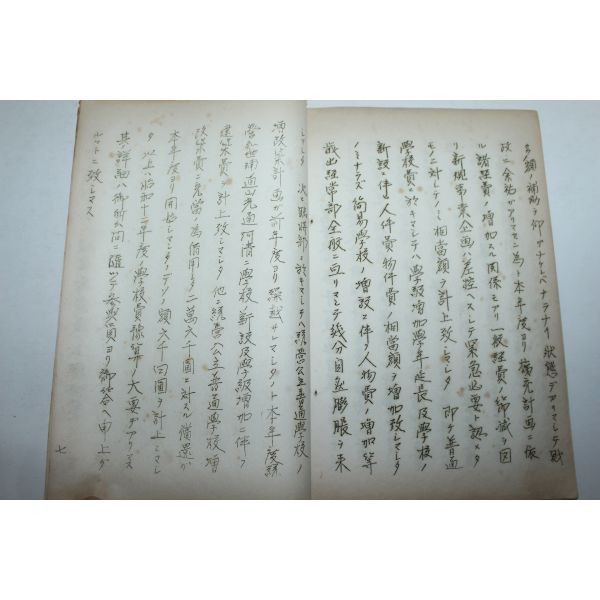 多額ノ補助ヲ仰ガナケレバナラナイ状態デアリマシテ財
政ニ余裕ガアリマセン為ト本年度ヨリ拡充計画ニ依
ル諸経費ノ増加スル関係モアリ一般経費ノ節減ヲ図
リ新規事業企画ハ差控ヘマシテ緊急必要ト認メタ
モノニ対シテノミ相當額ヲ計上致シマシタ 即チ普通
學校費ニ於キマシテハ學級増加學年延長及學校ノ
新設ニ伴フ人件費物件費ノ相當額ヲ増加致シマシタ
ノミナラズ簡易學校ノ増設ニ伴フ人物費ノ増加等
歳出経常部全般ニ亘リマシテ幾分目立膨脹ヲ来
シマシタ 次ニ臨時部ニ於キマシテハ統営公立普通學校ノ
増改築計画ガ前年度ヨリ繰越サレマシタノト本年度
學校新設及學級増加ニ伴フ
建築費ヲ計上致シマシタ 他ニ統営公立普通學校増
改築費ニ充當ノ為借用シタ二萬六千圓ニ対スル償還ガ
本年度ヨリ開始シマシタノデソノ額六千 圓ヲ計上シマシ
タ 以上ハ昭和十二年度學校費豫算ノ大要デアリマス
其詳細ハ御 問ニ 參與員ヨリ御 ヘ申上ゲ
ルコトニ致シマス
七